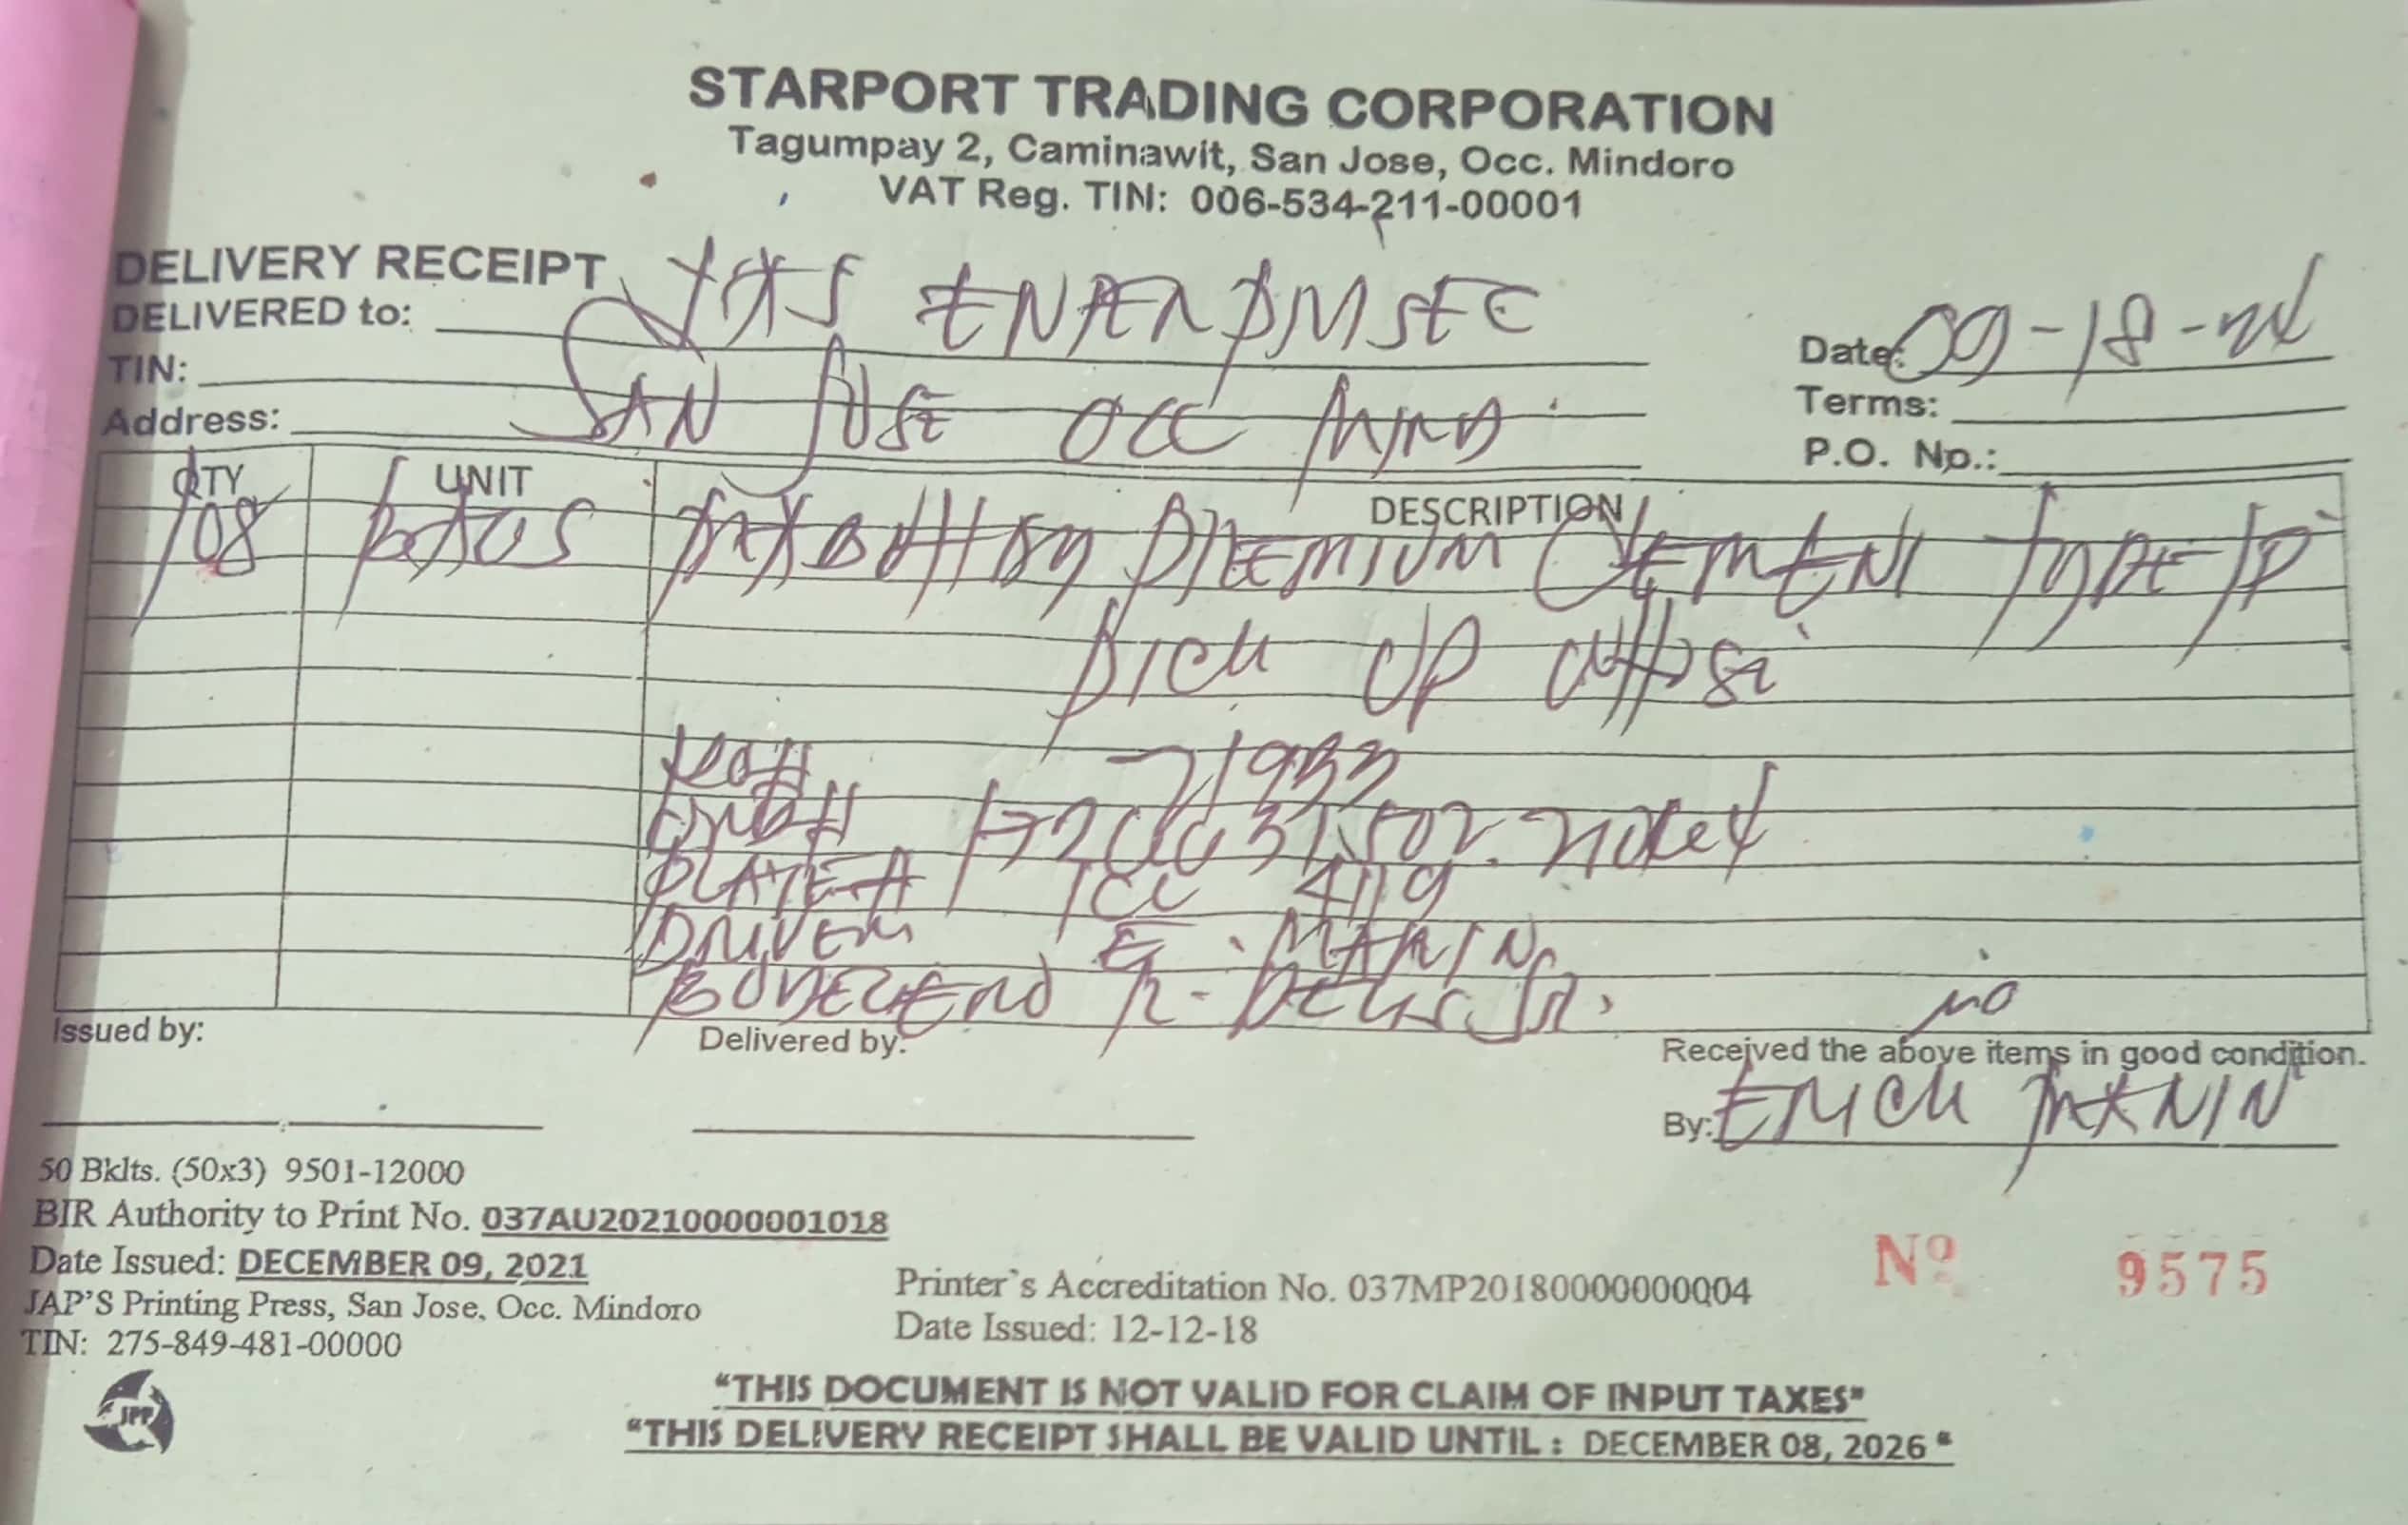 STARPORT TRADING CORPORATION
Tagumpay 2, Caminawit, San Jose, Occ. Mindoro
VAT Reg. TIN: 006-534-211-00001
DELIVERY RECEIPT
DELIVERED to:
TIN:
Address: SAN JOSE OCC
Date: 09-18-24
Terms:
P.O. No.:
QTY UNIT DESCRIPTION
108 BAGS PREMIUM CEMENT TYPE 1P
PICK UP
71933
PLATE# 4119
DRIVER E. MARIN
R. Jr.
Issued by:
Delivered by:
Received the above items in good condition.
By: ERICK MARIN
50 Bklts. (50x3) 9501-12000
BIR Authority to Print No. 037AU20210000001018
Date Issued: DECEMBER 09, 2021
JAP'S Printing Press, San Jose, Occ. Mindoro
TIN: 275-849-481-00000
Printer's Accreditation No. 037MP20180000000004
Date Issued: 12-12-18
Nº 9575
JPP
"THIS DOCUMENT IS NOT VALID FOR CLAIM OF INPUT TAXES"
"THIS DELIVERY RECEIPT SHALL BE VALID UNTIL : DECEMBER 08, 2026"